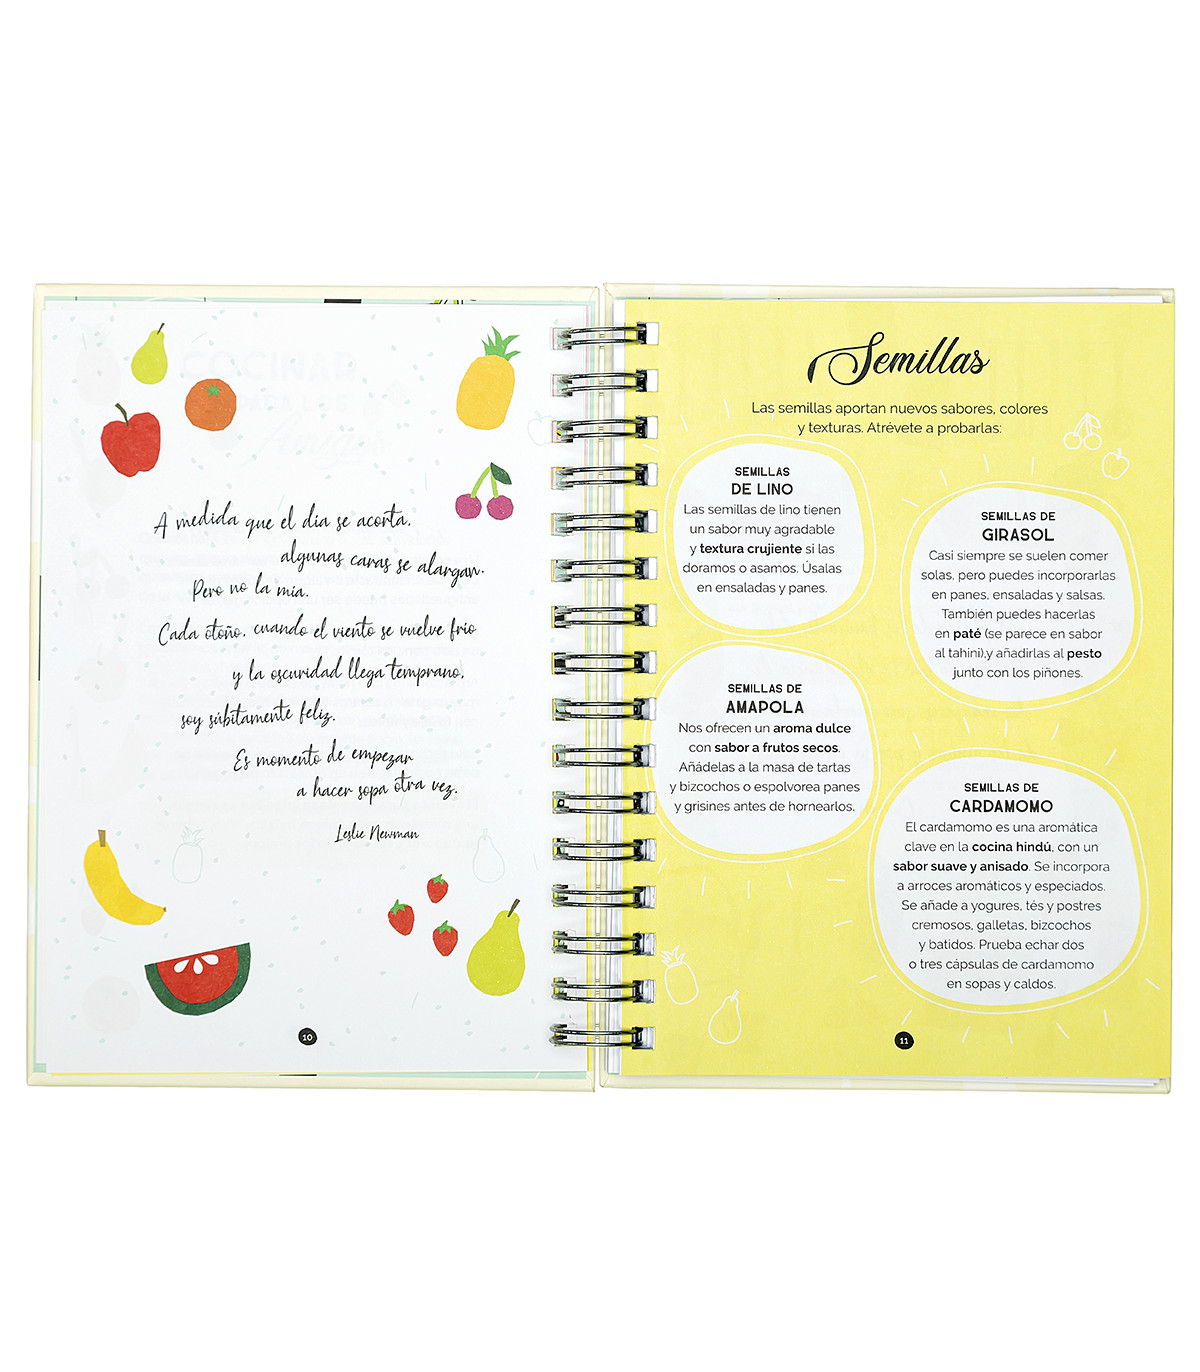 A medida que el día se acorta,
algunas caras se alargan.
Pero no la mía.
Cada otoño, cuando el viento se vuelve frío
y la oscuridad llega temprano,
soy súbitamente feliz.
Es momento de empezar
a hacer sopa otra vez.
Leslie Newman
10
Semillas
Las semillas aportan nuevos sabores, colores
y texturas. Atrévete a probarlas:
SEMILLAS
DE LINO
Las semillas de lino tienen
un sabor muy agradable
y textura crujiente si las
doramos o asamos. Úsalas
en ensaladas y panes.
SEMILLAS DE
GIRASOL
Casi siempre se suelen comer
solas, pero puedes incorporarlas
en panes, ensaladas y salsas.
También puedes hacerlas
en paté (se parece en sabor
al tahini),y añadirlas al pesto
junto con los piñones.
SEMILLAS DE
AMAPOLA
Nos ofrecen un aroma dulce
con sabor a frutos secos.
Añádelas a la masa de tartas
y bizcochos o espolvorea panes
y grisines antes de hornearlos.
SEMILLAS DE
CARDAMOMO
El cardamomo es una aromática
clave en la cocina hindú, con un
sabor suave y anisado. Se incorpora
a arroces aromáticos y especiados.
Se añade a yogures, tés y postres
cremosos, galletas, bizcochos
y batidos. Prueba echar dos
o tres cápsulas de cardamomo
en sopas y caldos.
11